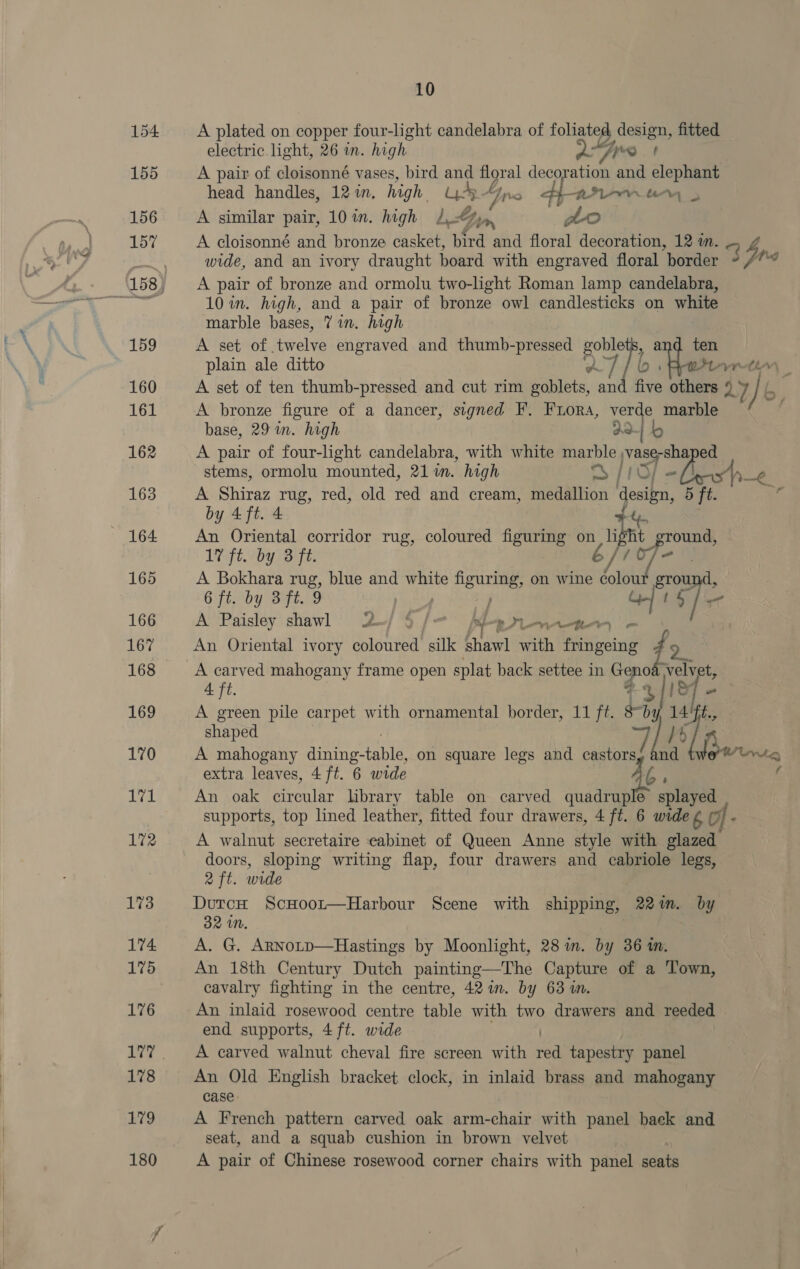 10
154 A plated on copper four-light candelabra of foliated design, fitted
electric light, 26 in. high 2 Gns
155 A pair of cloisonné vases, bird and floral decoration and elephant
head handles, 12 in. high Gns
156 A similar pair, 10 in. high do
157 A cloisonné and bronze casket, bird and floral decoration, 12 in.
wide, and an ivory draught board with engraved floral border 3 Gns
158 A pair of bronze and ormolu two-light Roman lamp candelabra,
10 in. high, and a pair of bronze owl candlesticks on white
marble bases, 7 in. high
159 A set of twelve engraved and thumb-pressed goblets, and ten
plain ale ditto 27/6
160 A set of ten thumb-pressed and cut rim goblets, and five others 27/6
161 A bronze figure of a dancer, signed F. Flora, verde marble
base, 29 in. high 22/6
162 A pair of four-light candelabra, with white marble vase-shaped
stems, ormolu mounted, 21 in. high
163 A Shiraz rug, red, old red and cream, medallion design, 5 ft.
by 4 ft. 4
164 An Oriental corridor rug, coloured figuring on light ground,
17 ft. by 3 ft. 6/10/-
165 A Bokhara rug, blue and white figuring, on wine colour ground,
6 ft. by 3 ft. 9 4/15/-
166 A Paisley shawl 2/5/-
167 An Oriental ivory coloured silk shawl with fringeing
168 A carved mahogany frame open splat back settee in Genoa velvet,
4 ft.
169 A green pile carpet with ornamental border, 11 ft. 8 by 14 ft.,
shaped
170 A mahogany dining-table, on square legs and castors, and two
extra leaves, 4 ft. 6 wide
171 An oak circular library table on carved quadruple splayed
supports, top lined leather, fitted four drawers, 4 ft. 6 wide
172 A walnut secretaire cabinet of Queen Anne style with glazed
doors, sloping writing flap, four drawers and cabriole legs,
2 ft. wide
173 Dutch School—Harbour Scene with shipping, 22 in. by
32 in.
174 A. G. Arnold—Hastings by Moonlight, 28 in. by 36 in.
175 An 18th Century Dutch painting—The Capture of a Town,
cavalry fighting in the centre, 42 in. by 63 in.
176 An inlaid rosewood centre table with two drawers and reeded
end supports, 4 ft. wide
177 A carved walnut cheval fire screen with red tapestry panel
178 An Old English bracket clock, in inlaid brass and mahogany
case
179 A French pattern carved oak arm-chair with panel back and
seat, and a squab cushion in brown velvet
180 A pair of Chinese rosewood corner chairs with panel seats